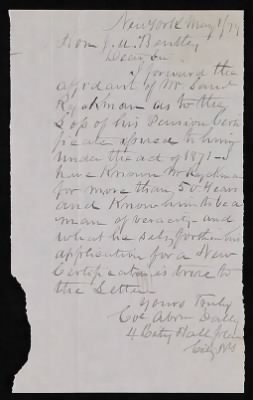 New York May 1/79
Hon J. A. Bentley
Dear Sir
I forward the
afidavit of Mr Saml
Ryckman as to the
Loss of his Pension Certi
ficate issued to him
under the act of 1871 - I
have Known Mr Ryckman
for more than 50 years
and Know him to be a
man of veracity - and
what he sets forth in his
application for a New
Certificate is true to
the Letter
Yours Truly
Col Abrm Dally
4 City Hall
City NY